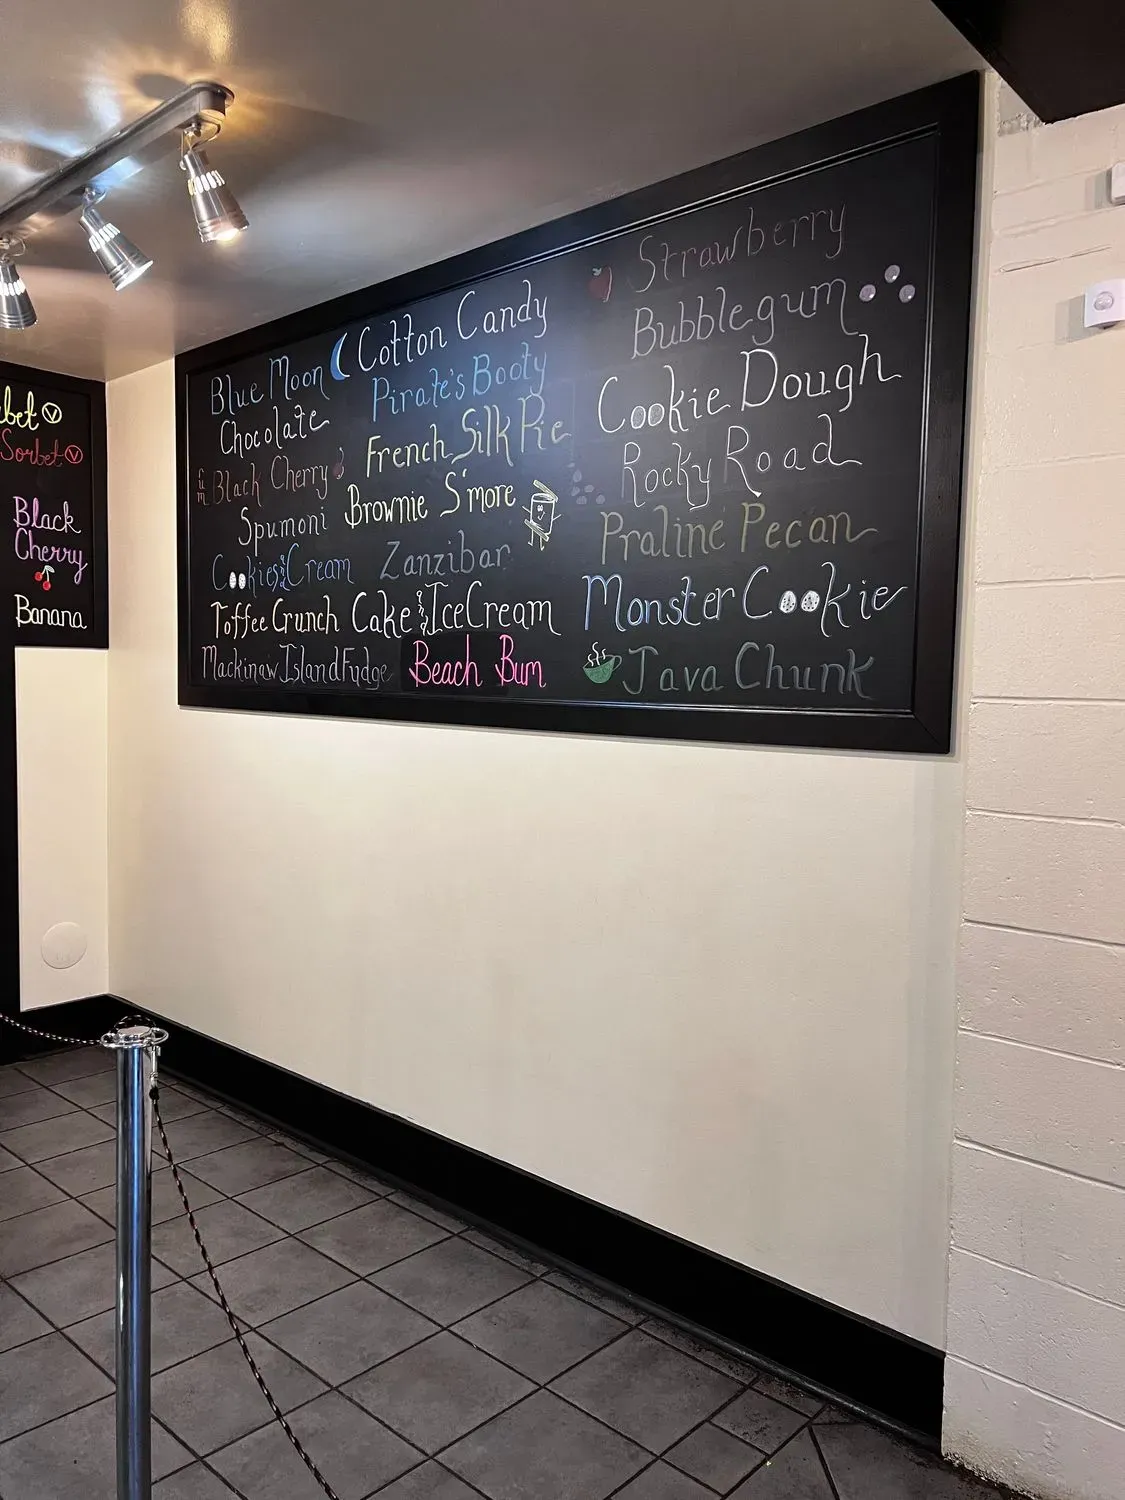 Sorbet Ⓥ
Black
Cherry
Banana
Blue Moon
Chocolate
Black Cherry
Spumoni
Cookies & Cream
Toffee Crunch
Mackinaw Island Fudge
Cotton Candy
Pirate's Booty
French Silk Pie
Brownie S'more
Zanzibar
Cake & Ice Cream
Beach Bum
Strawberry
Bubblegum
Cookie Dough
Rocky Road
Praline Pecan
Monster Cookie
Java Chunk